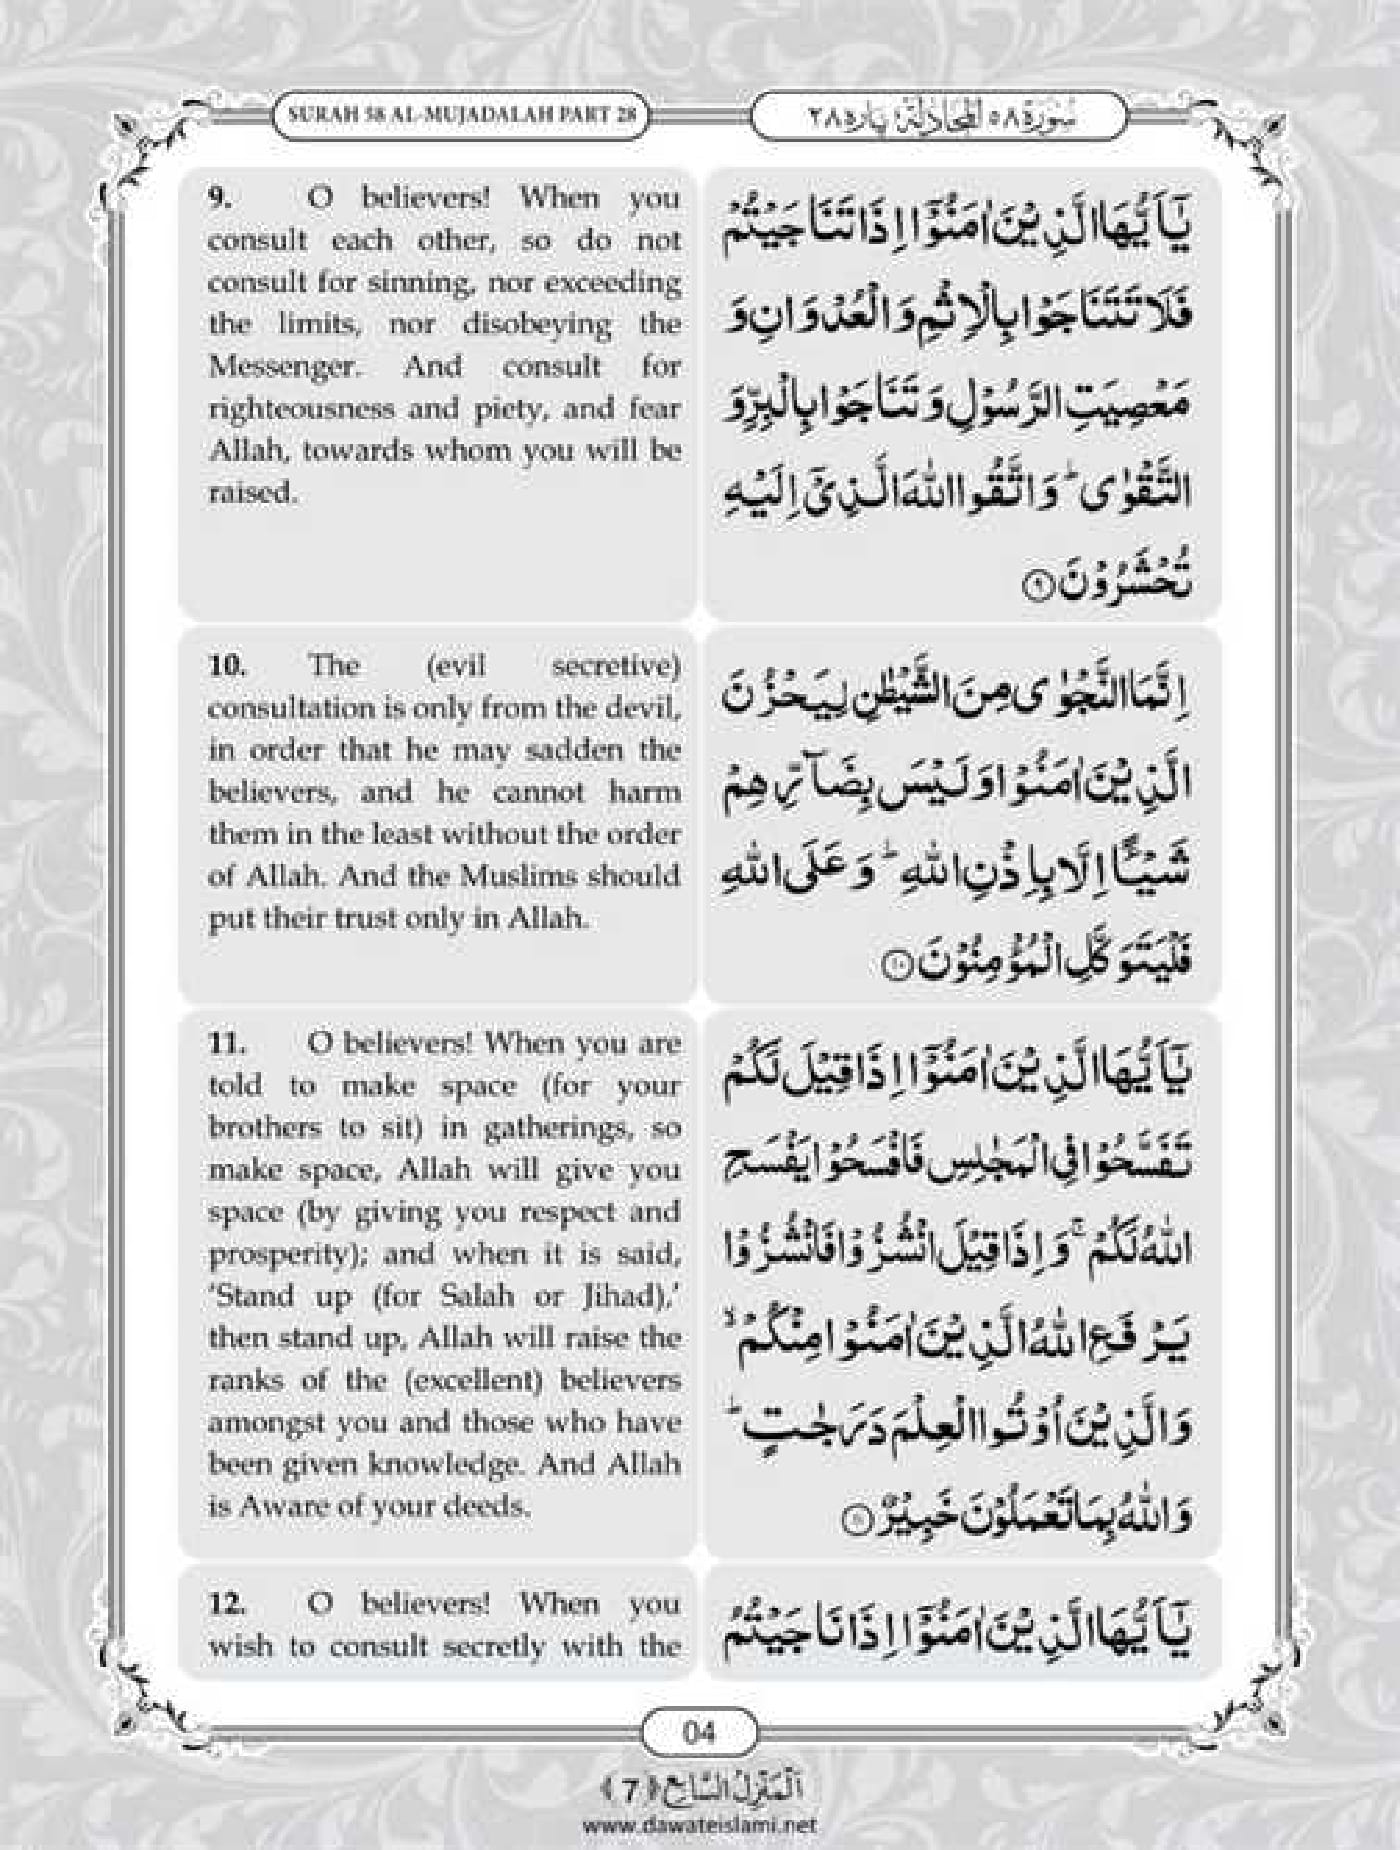 SURAH 58 AL-MUJADALAH PART 28
سُوْرَةُ ٥٨ اَلْمُجَادَلَة: پاره ٢٨
9. O believers! When you
consult each other, so do not
consult for sinning, nor exceeding
the limits, nor disobeying the
Messenger. And consult for
righteousness and piety, and fear
Allah, towards whom you will be
raised.
يٰۤاَيُّهَا الَّذِيْنَ اٰمَنُوْۤا اِذَا تَنَاجَيْتُمْ
فَلَا تَتَنَاجَوْا بِالْاِثْمِ وَ الْعُدْوَانِ وَ
مَعْصِيَتِ الرَّسُوْلِ وَ تَنَاجَوْا بِالْبِرِّ وَ
التَّقْوٰى ؕ وَ اتَّقُوا اللّٰهَ الَّذِيْۤ اِلَيْهِ
تُحْشَرُوْنَ ۹
10. The (evil secretive)
consultation is only from the devil,
in order that he may sadden the
believers, and he cannot harm
them in the least without the order
of Allah. And the Muslims should
put their trust only in Allah.
اِنَّمَا النَّجْوٰى مِنَ الشَّيْطٰنِ لِيَحْزُنَ
الَّذِيْنَ اٰمَنُوْا وَ لَيْسَ بِضَآرِّهِمْ
شَيْـًٔا اِلَّا بِاِذْنِ اللّٰهِ ؕ وَ عَلَى اللّٰهِ
فَلْيَتَوَكَّلِ الْمُؤْمِنُوْنَ ۱۰
11. O believers! When you are
told to make space (for your
brothers to sit) in gatherings, so
make space, Allah will give you
space (by giving you respect and
prosperity); and when it is said,
‘Stand up (for Salah or Jihad),’
then stand up, Allah will raise the
ranks of the (excellent) believers
amongst you and those who have
been given knowledge. And Allah
is Aware of your deeds.
يٰۤاَيُّهَا الَّذِيْنَ اٰمَنُوْۤا اِذَا قِيْلَ لَكُمْ
تَفَسَّحُوْا فِي الْمَجٰلِسِ فَافْسَحُوْا يَفْسَحِ
اللّٰهُ لَكُمْ ۚ وَ اِذَا قِيْلَ انْشُزُوْا فَانْشُزُوْا
يَرْفَعِ اللّٰهُ الَّذِيْنَ اٰمَنُوْا مِنْكُمْ ۙ
وَ الَّذِيْنَ اُوْتُوا الْعِلْمَ دَرَجٰتٍ ؕ
وَ اللّٰهُ بِمَا تَعْمَلُوْنَ خَبِيْرٌ ۱۱
12. O believers! When you
wish to consult secretly with the
يٰۤاَيُّهَا الَّذِيْنَ اٰمَنُوْۤا اِذَا نَاجَيْتُمُ
04
اَلْمَنْزِلُ السَّابِع ﴿ 7 ﴾
www.dawateislami.net